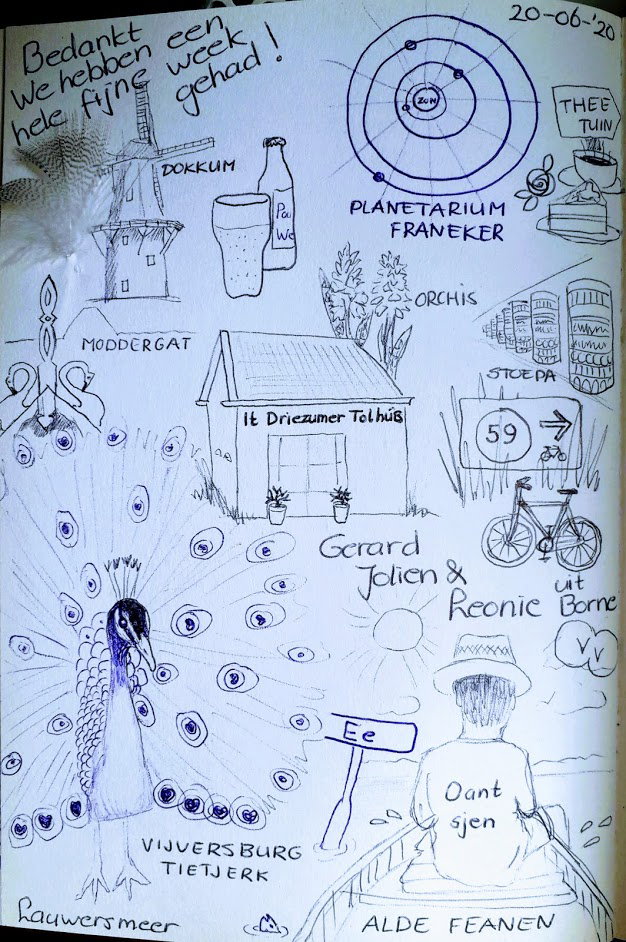 20-06-'20
Bedankt
We hebben een
hele fijne week
gehad!
ZON
THEE
TUIN
DOKKUM
PLANETARIUM
FRANEKER
ORCHIS
MODDERGAT
STOEPA
It Driezumer Tolhûs
59
Gerard
Jolien &
Reonie
uit
Borne
Ee
Oant
sjen
VIJVERSBURG
TIETJERK
Lauwersmeer
ALDE FEANEN